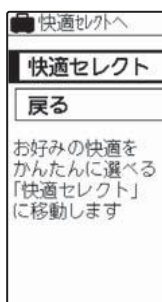 快適ｾﾚｸﾄへ
快適セレクト
戻る
お好みの快適を
かんたんに選べる
「快適セレクト」
に移動します